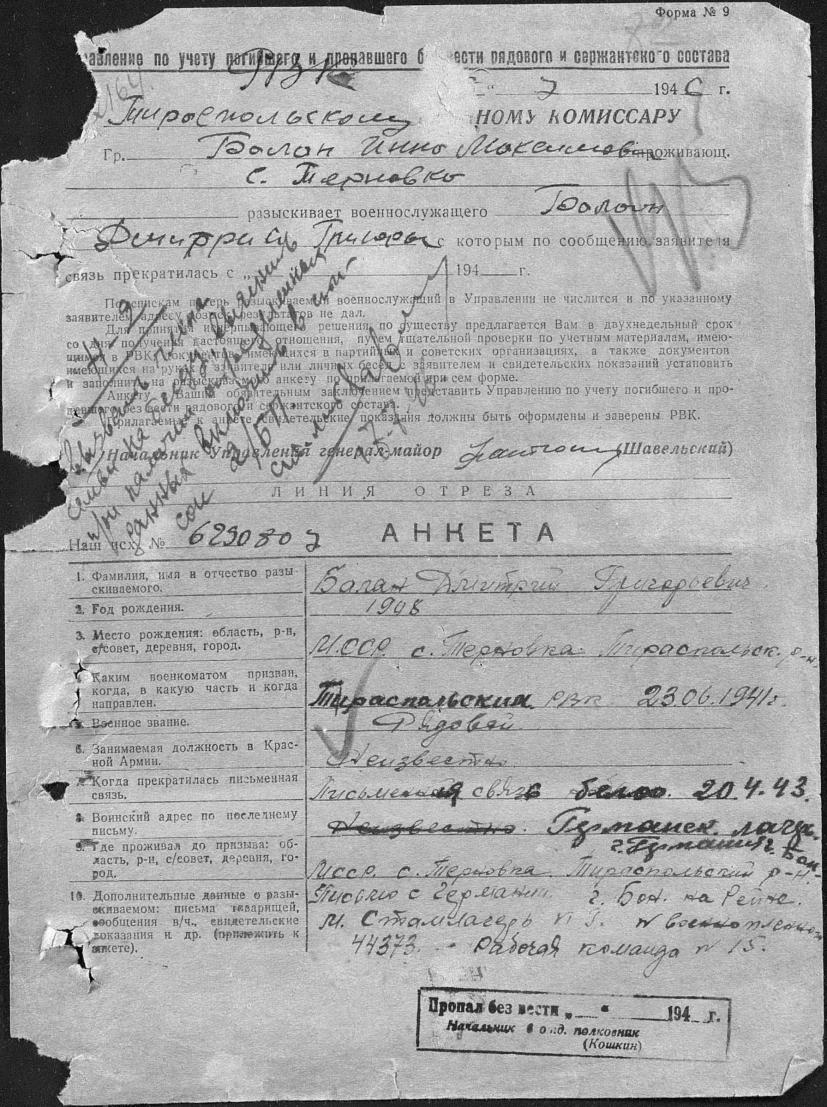 Форма № 9
авление по учету погибшего и пропавшего без вести рядового и сержантского состава
РВК
" " 7 1946 г.
Тираспольскому НОМУ КОМИССАРУ
Гр. Балан Инна Максимовна проживающ.
с. Терновка
разыскивает военнослужащего Балан
Дмитрия Григорь с которым по сообщению заявителя
связь прекратилась с „ 194 г.
По спискам потерь разыскиваемый военнослужащий в Управлении не числится и по указанному
заявителем адресу розыск результатов не дал.
Для принятия исчерпывающего решения по существу предлагается Вам в двухнедельный срок
со дня получения настоящего отношения, путем тщательной проверки по учетным материалам, имею-
щимся в РВК, документов, имеющихся в партийных и советских организациях, а также документов
имеющихся на руках заявителя или личных бесед с заявителем и свидетельских показаний установить
и заполнить на разыскиваемого анкету по прилагаемой при сем форме.
Анкету с Вашим обязательным заключением представить Управлению по учету погибшего и про-
павшего без вести рядового и сержантского состава.
Прилагаемые к анкете свидетельские показания должны быть оформлены и заверены РВК.
Н-3
Вызвать члена
семьи на беседу выяснить
при наличии определенных
данных включить в
Начальник Управления генерал-майор (Шавельский)
ЛИНИЯ ОТРЕЗА
Наш исх. № 6290807 АНКЕТА
1. Фамилия, имя и отчество разы-
скиваемого. Балан Дмитрий Григорьевич
2. Год рождения. 1908
3. Место рождения: область, р-н,
с/совет, деревня, город. М.ССР. с. Терновка Тираспольск. р-н.
Каким военкоматом призван,
когда, в какую часть и когда
направлен. Тираспольским РВК 23.06.1941г.
5. Военное звание. Рядовой
6. Занимаемая должность в Крас-
ной Армии. Неизвестно
7. Когда прекратилась письменная
связь. Письменная связь 20.4.43.
8. Воинский адрес по последнему
письму. Неизвестно. Германск. лагр.
г. Германия г. Бон
9. Где проживал до призыва: об-
ласть, р-н, с/совет, деревня, го-
род. МССР. с. Терновка Тираспольский р-н.
10. Дополнительные данные о разы-
скиваемом: письма товарищей,
сообщения в/ч., свидетельские
показания и др. (приложить к
анкете). Письмо с Германии г. Бон. на Рейне.
М. Сталлагерь № военнопленого
44373. - Рабочая команда № 15.
Пропал без вести „ “ 194 г.
Начальник 6 отд. полковник
(Кошкин)